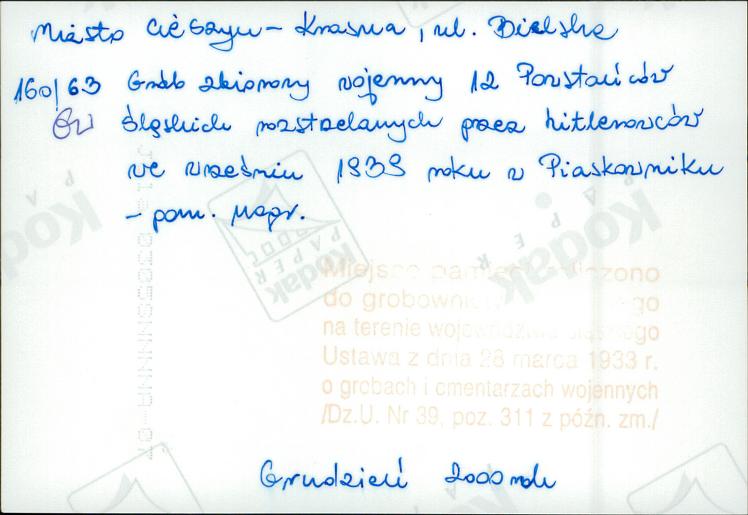 Miasto Cieszyn – Krasna, ul. Bielska
160/63 Grób zbiorowy wojenny 12 Powstańców
GW Śląskich rozstrzelanych przez hitlerowców
we wrześniu 1939 roku w Piaskowniku
– pom. nagr.
Miejsce pamięci zaliczono
do grobownictwa
na terenie województwa śląskiego
Ustawa z dnia 28 marca 1933 r.
o grobach i cmentarzach wojennych
/Dz.U. Nr 39, poz. 311 z późn. zm./
Grudzień 2000 rok
Kodak
PAPER